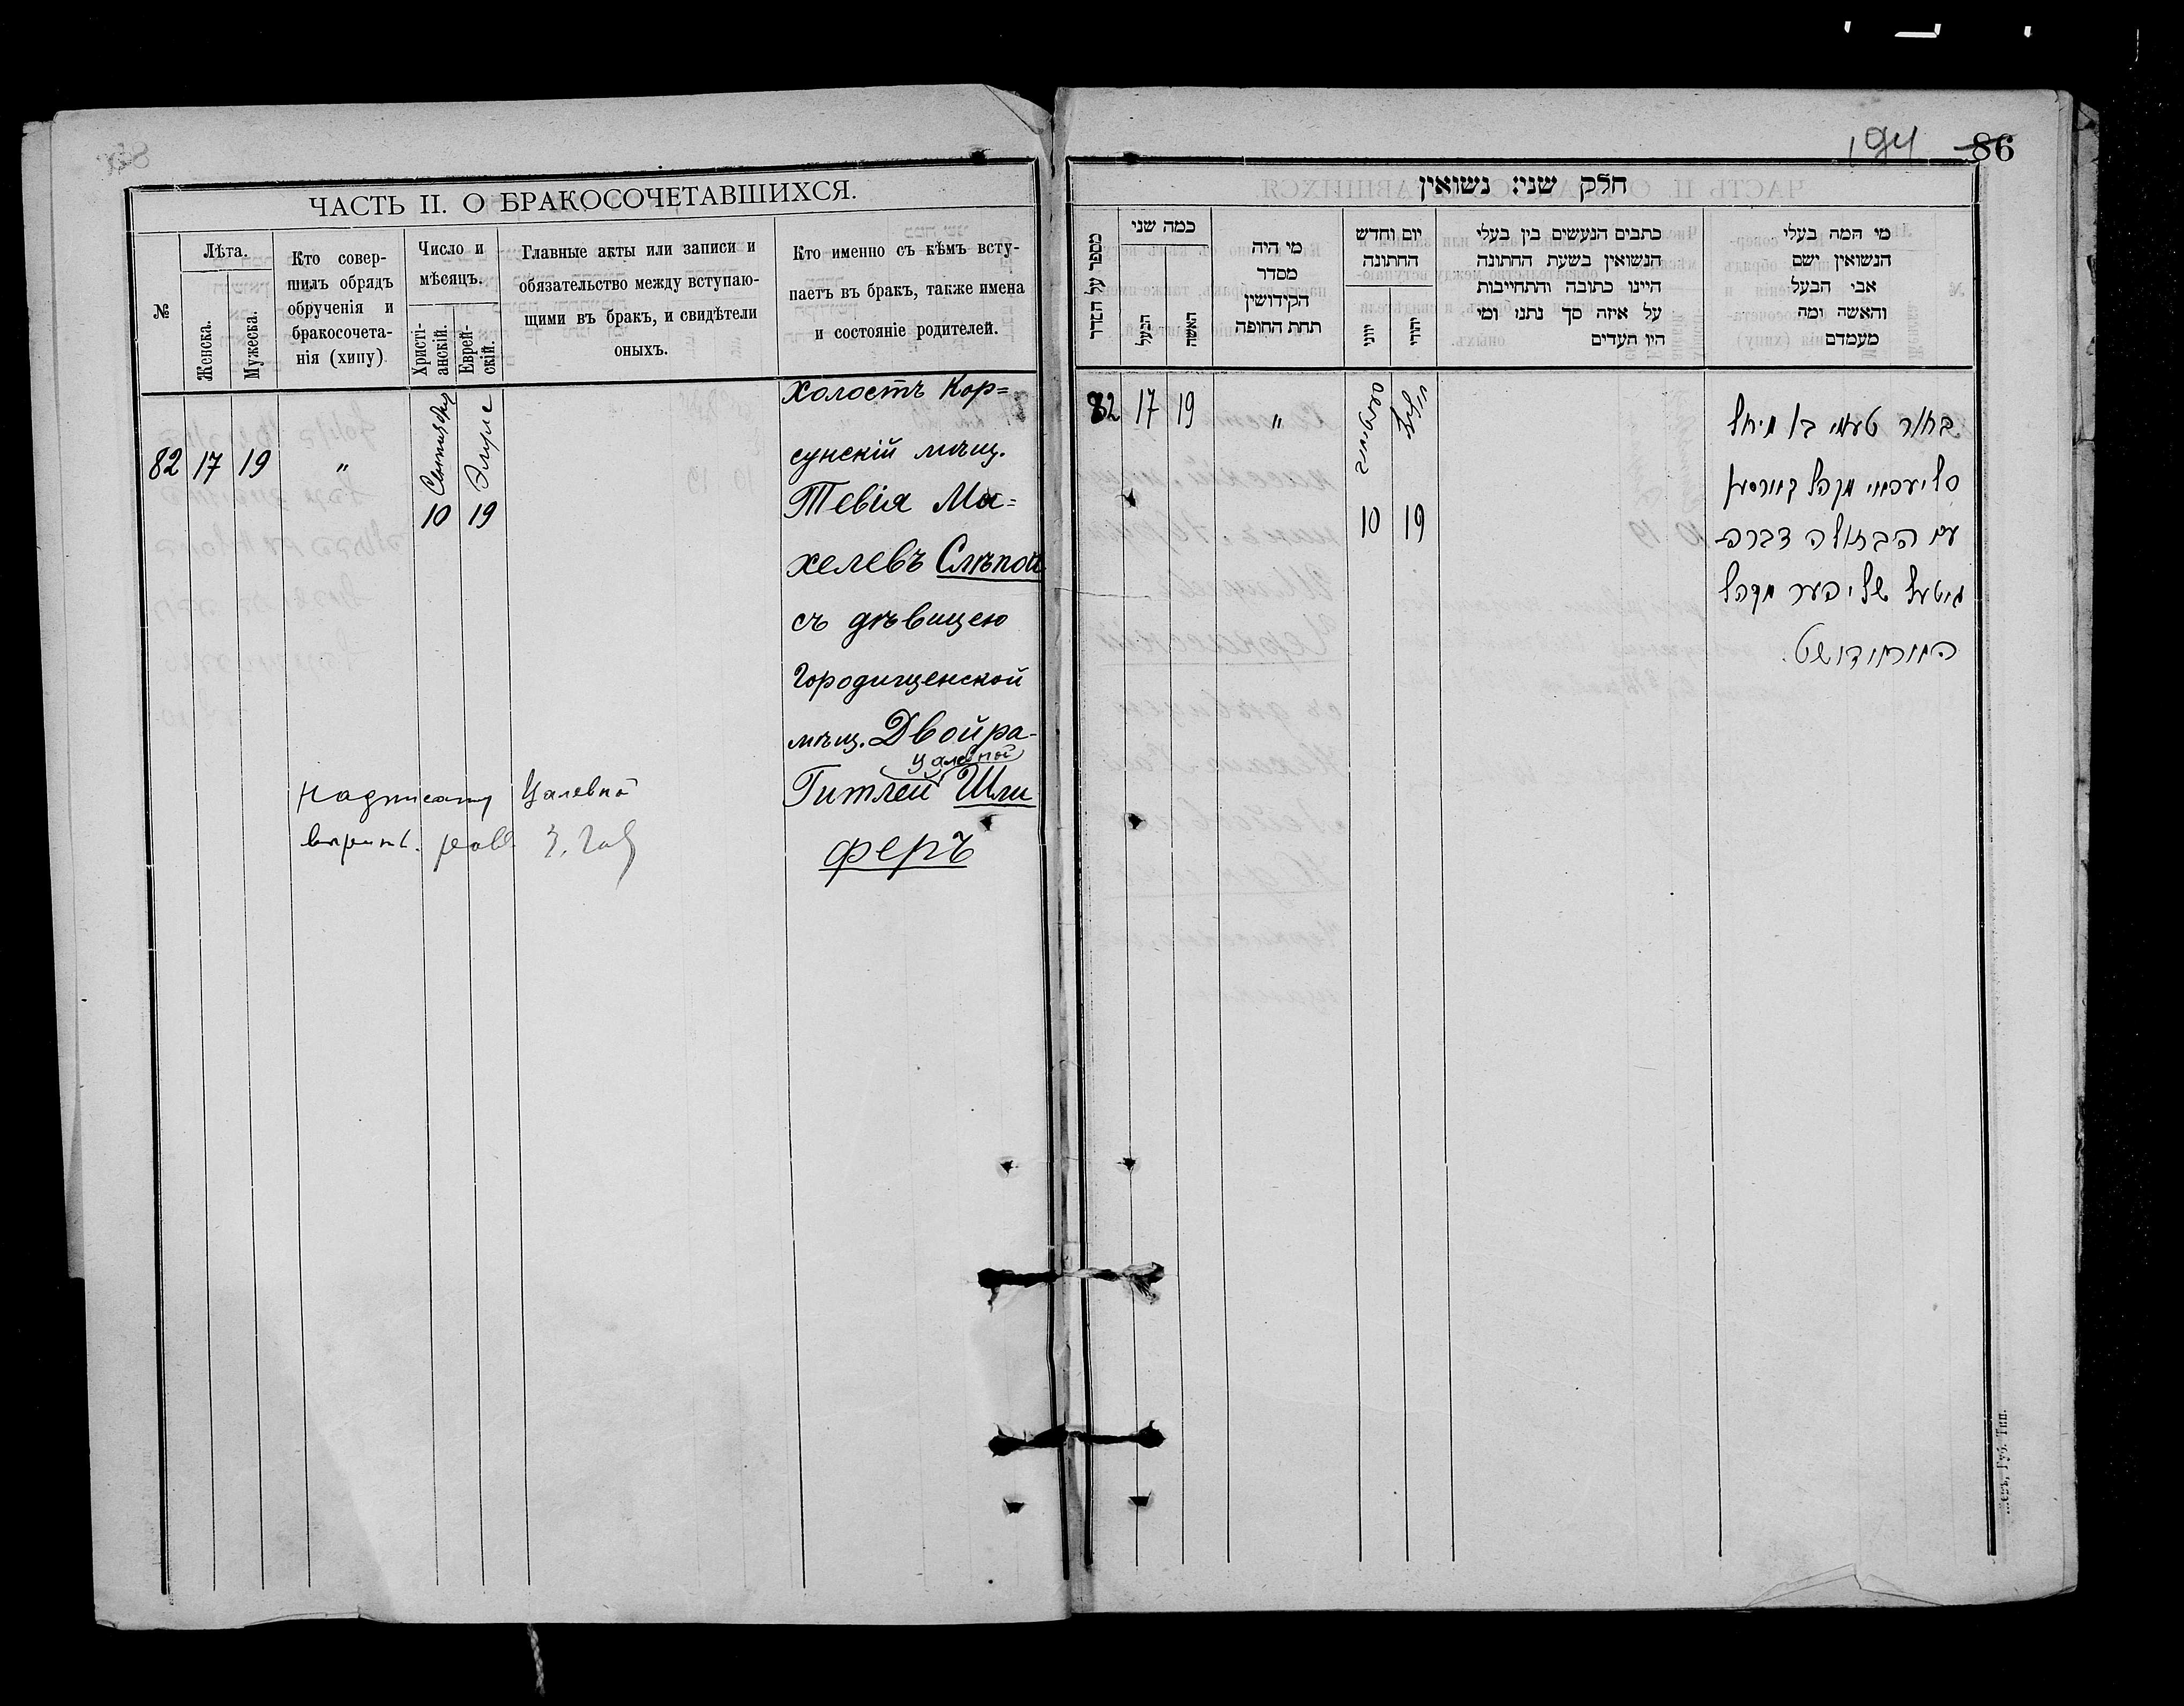 ЧАСТЬ II. О БРАКОСОЧЕТАВШИХСЯ.
№
Лѣта.
Женска.
Мужеска.
Кто совер-
шилъ обрядъ
обрученія и
бракосочета-
нія (хипу)
Число и
мѣсяцъ.
Христі-
анскій.
Еврей-
скій.
Главные акты или записи и
обязательство между вступаю-
щими въ бракъ, и свидѣтели
оныхъ.
Кто именно съ кѣмъ всту-
паетъ въ бракъ, также имена
и состояніе родителей.
82 17 19 "
10 19
Холостъ Кор=
сунскій мѣщ.
Тевія Ма=
хелевъ Слѣпой
съ дѣвицею
Городищенской
мѣщ. Двойра-
Цалевной
Гитлей Шли
феръ
Цалевной
194 86
חלק שני: נשואין
מספר על הסדר
כמה שני
הבעל
האשה
מי היה
מסדר
הקידושין
תחת החופה
יום וחדש
החתונה
יווני
יהודי
כתבים הנעשים בין בעלי
הנשואין בשעת החתונה
היינו כתובה והתחייבות
על איזה סך נתנו ומי
היו העדים
מי המה בעלי
הנשואין ושם
אבי הבעל
והאשה ומה
מעמדם
82 17 19 "
סעפטיאבר
אלול
10 19
בחור טעווי בן מיחל
סליעפאי מקהל קורסון
עם הבתולה דברה
גיטעל שליפער מקהל
Губ. Тип.